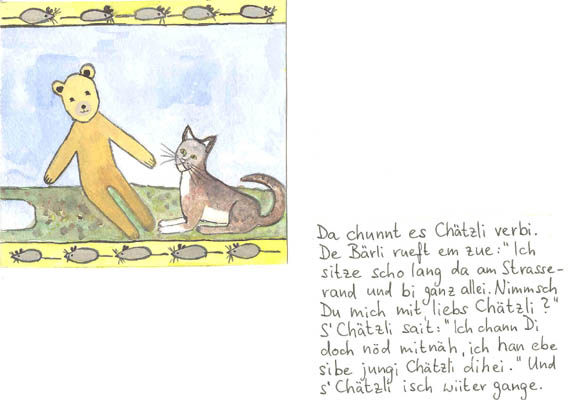 Da chunnt es Chätzli verbi.
De Bärli rueft em zue: "Ich
sitze scho lang da am Strasse-
rand und bi ganz allei. Nimmsch
Du mich mit, liebs Chätzli?"
S' Chätzli sait: "Ich chann Di
doch nöd mitnäh, ich han ebe
sibe jungi Chätzli dihei." Und
s' Chätzli isch wiiter gange.